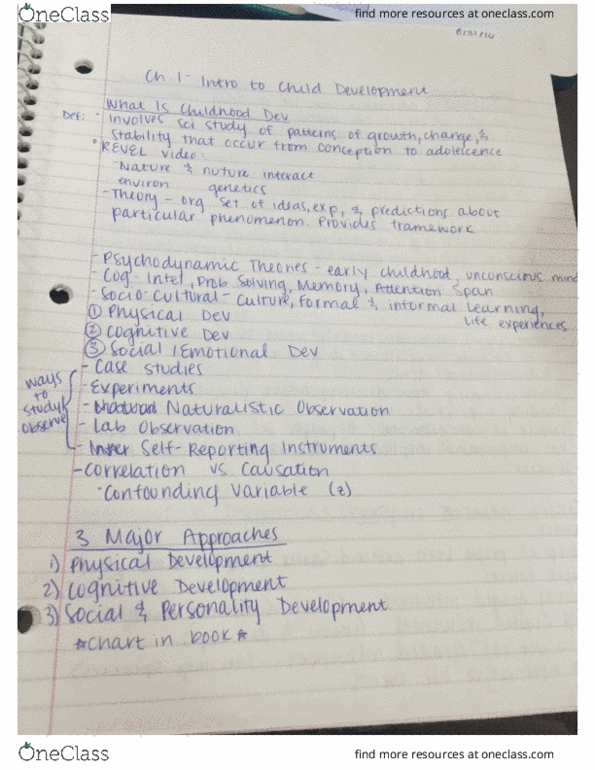 OneClass
find more resources at oneclass.com
8/31/16
Ch 1 - Intro to Child Development
What Is Childhood Dev
Def: • involves sci study of patterns of growth, change, &
stability that occur from conception to adolelcence
• REVEL video:
- Nature & nuture interact
environ genetics
- Theory - org set of ideas, exp, & predictions about
particular phenomenon. Provides framework
- Psychodynamic Theories - early childhood, unconscious mind
- Cog - Intel, Prob Solving, Memory, Attention Span
- Socio-Cultural - Culture, Formal & informal Learning,
Life experiences
① Physical Dev
② Cognitive Dev
③ Social / Emotional Dev
ways to study/ observe
- Case studies
- Experiments
- Naturalistic Observation
- Lab Observation
- Self-Reporting Instruments
- Correlation vs Causation
- Confounding Variable (z)
3 Major Approaches
1) Physical Development
2) Cognitive Development
3) Social & Personality Development
*Chart in book*
OneClass
find more resources at oneclass.com